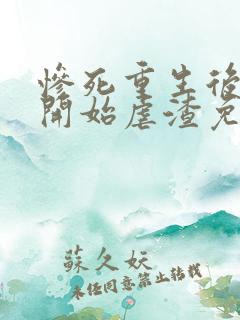 慘死重生後
開始虐渣免
蘇久妖
未經同意禁止轉載